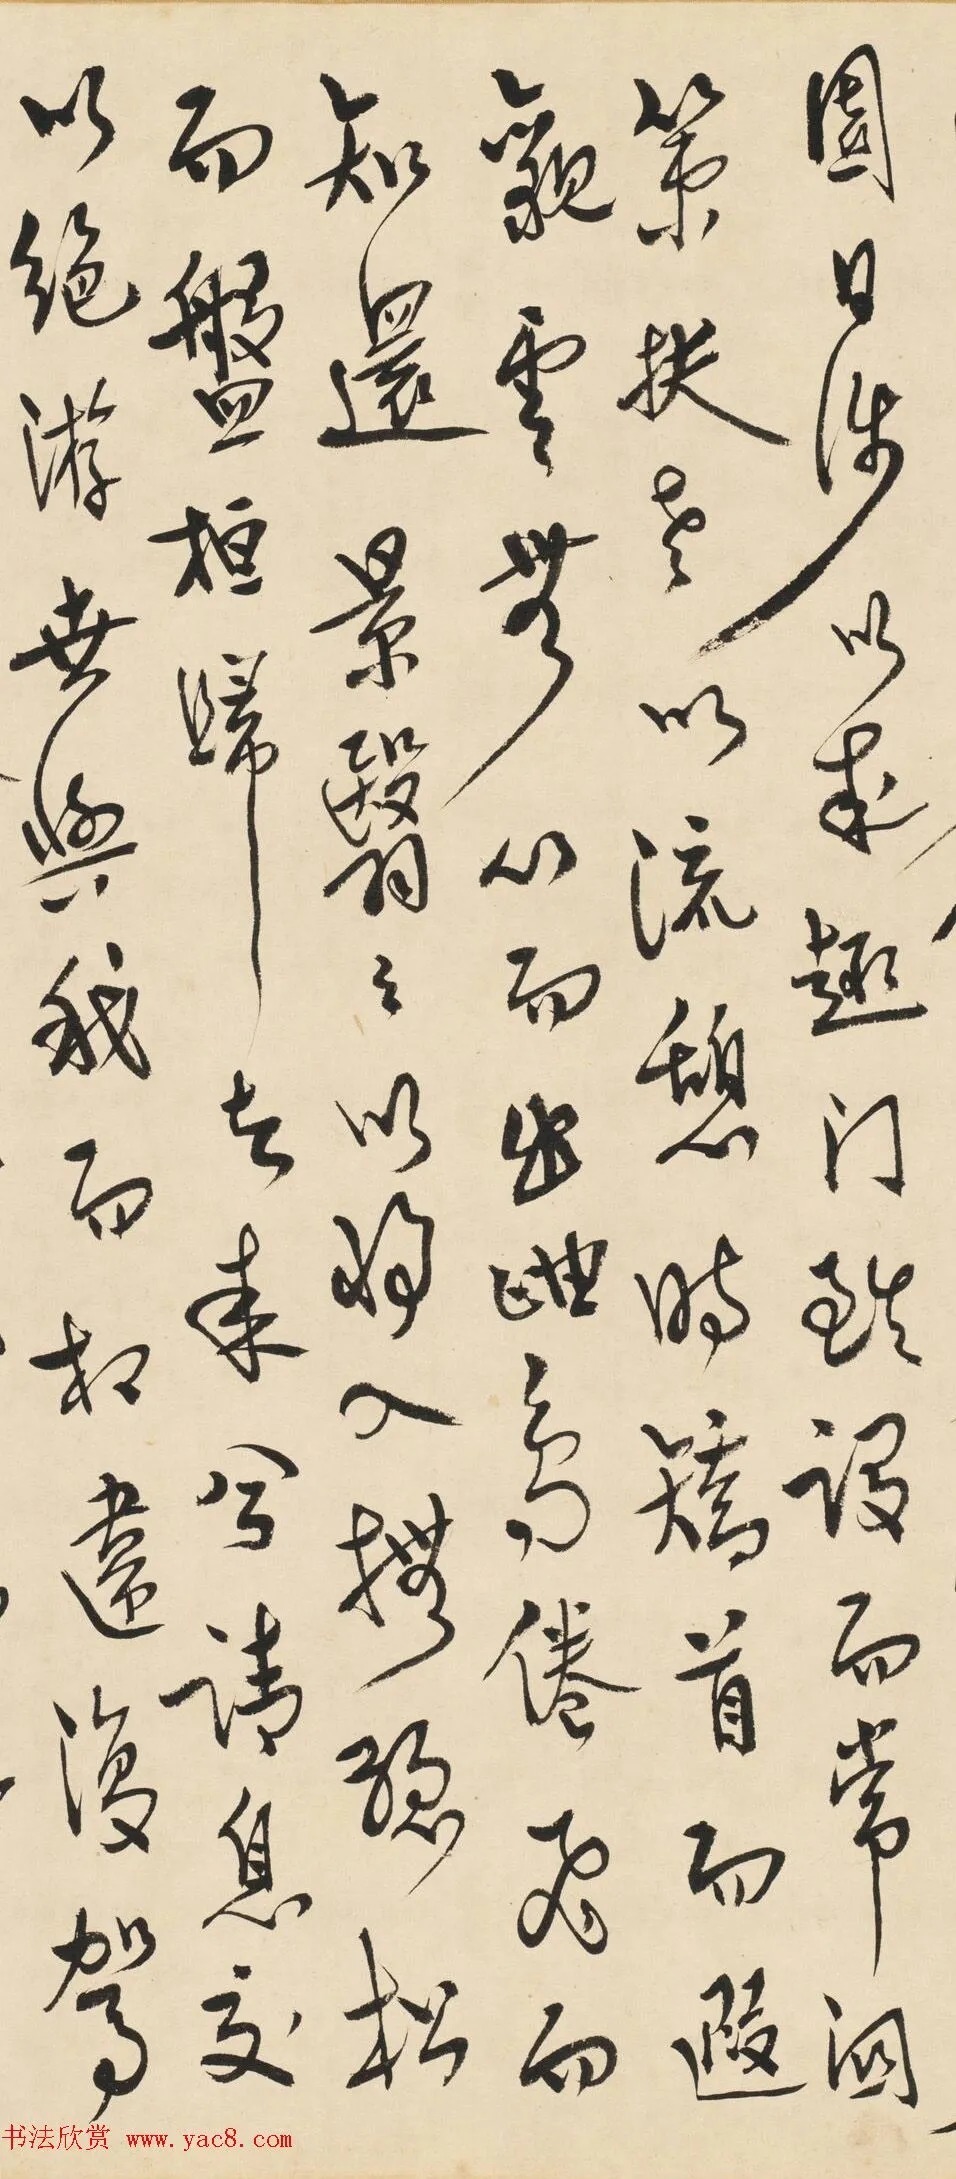 園日涉以成趣門雖設而常關
策扶老以流憩時矯首而遐
觀雲無心而出岫鳥倦飛而
知還景翳々以將入撫孤松
而盤桓歸去來兮請息交
以絶游世與我而相違復駕
书法欣赏 www.yac8.com